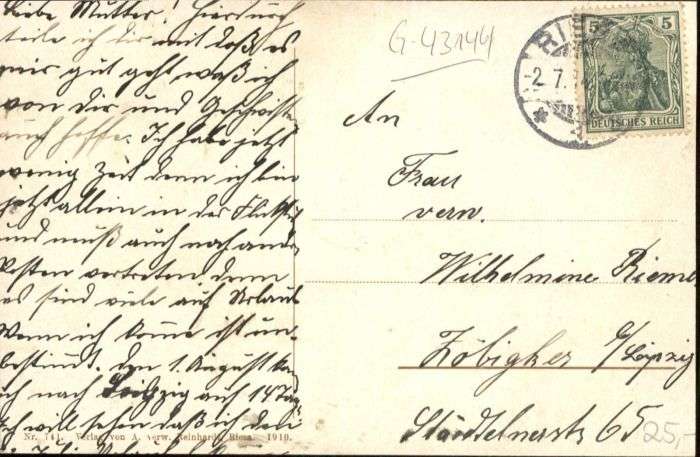 Liebe Mutter! Hierdurch
teile ich dir mit daß es
mir gut geht was ich
von dir und Geschwister
auch hoffe. Ich habe jetzt
wenig Zeit denn ich bin
jetzt allein in der
und muß auch noch andre
Posten vertreten denn
es sind viele auf Urlaub
Wenn ich kome ist un-
bestimt. Den 1. August
ich nach Leipzig auf 14 Tag
Ich will sehen daß ich
Nr. 741. Verlag von A. verw. Reinhardt, Riesa. 1910.
G-43144
RIESA
-2.7.
5 5
DEUTSCHES REICH
An
Frau
verw.
Wilhelmine Rieme
Zöbigker b/Leipzig
65
25,-